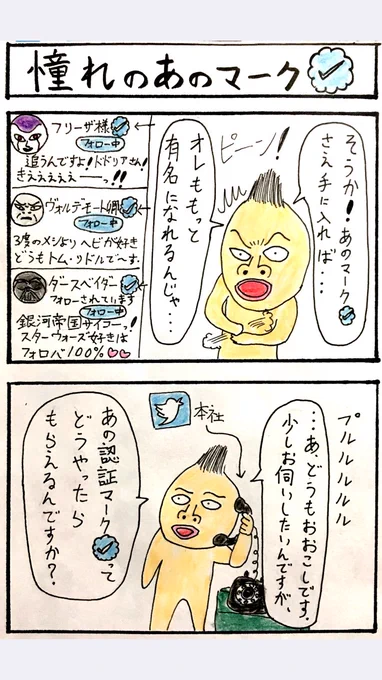 憧れのあのマーク
そうか!!あのマーク
さえ手に入れば・・・
ピーン!
オレももっと
有名になれるんじゃ・・・
フリーザ様
フォロー中
追うんですよ!ドドリアさん!
きえええええーーっ!!
ヴォルデモート卿
フォロー中
3度のメシよりヘビが好き
どうもトム・リドルで〜す。
ダースベイダー
フォローされています
フォロー中
銀河帝国サイコーっ!
スターウォーズ好きは
フォロバ100%
プルルルルル
・・・あ、どうもおおこしです。
少しお伺いしたいんですが、
本社
あの認証マークって
どうやったら
もらえるんですか?